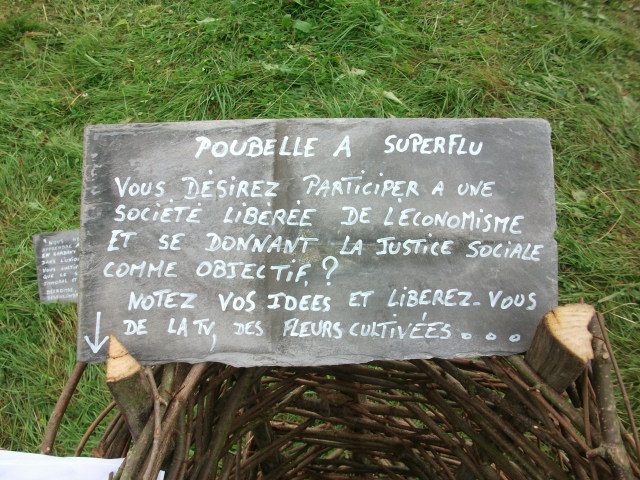 POUBELLE A SUPERFLU
VOUS DÉSIREZ PARTICIPER A UNE
SOCIÉTÉ LIBERÉE DE L'ECONOMISME
ET SE DONNANT LA JUSTICE SOCIALE
COMME OBJECTIF ?
NOTEZ VOS IDEES ET LIBEREZ-VOUS
DE LA TV, DES FLEURS CULTIVÉES...